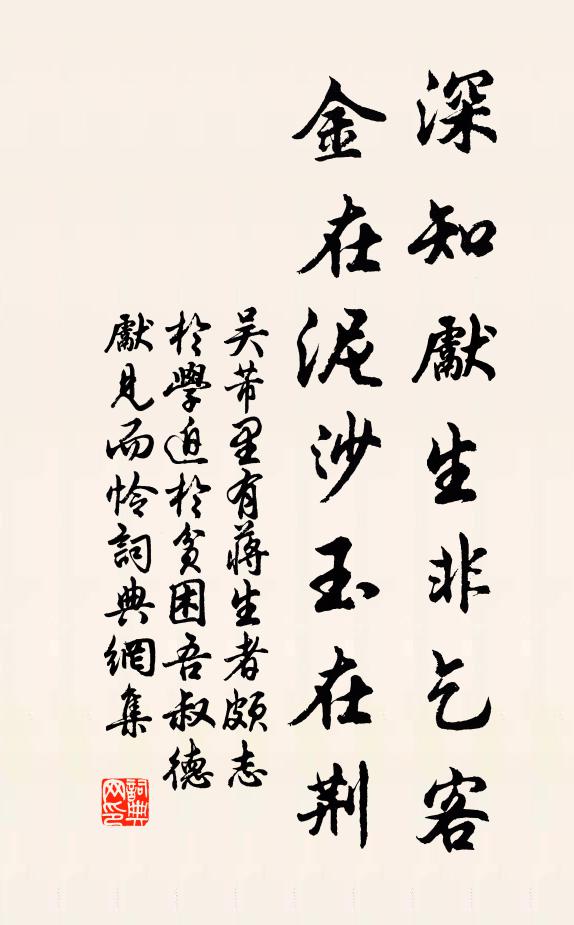 深知獻生非乞客
金在泥沙玉在荆
吴芾里有蔣生者頗志
於學迫於貧困吾叔德
獻見而怜詞典網集
詞典
网印